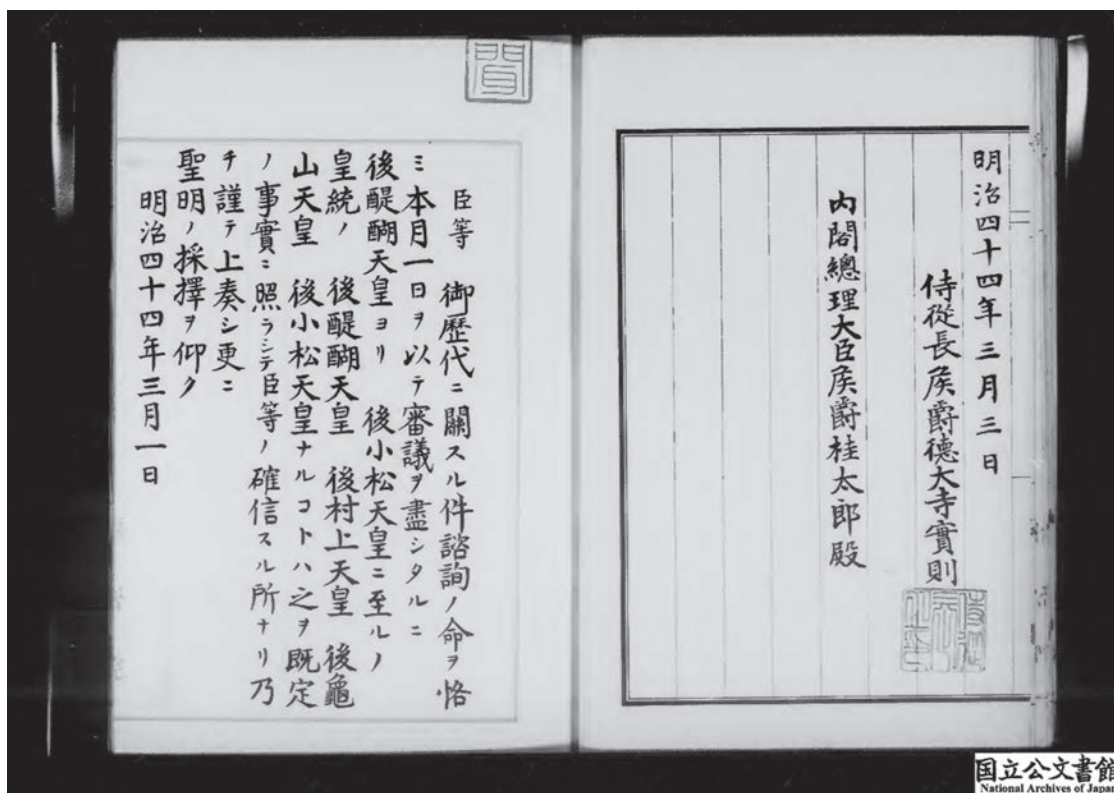 明治四十四年三月三日
侍從長侯爵德大寺實則
內閣總理大臣侯爵桂太郎殿
臣等　御歷代ニ關スル件諮詢ノ命ヲ恪
ミ本月一日ヲ以テ審議ヲ盡シタルニ
後醍醐天皇ヨリ　後小松天皇ニ至ルノ
皇統ノ　後醍醐天皇　後村上天皇　後龜
山天皇　後小松天皇ナルコトハ之ヲ既定
ノ事實ニ照ラシテ臣等ノ確信スル所ナリ乃
チ謹テ上奏シ更ニ
聖明ノ採擇ヲ仰ク
明治四十四年三月一日
国立公文書館
National Archives of Japan